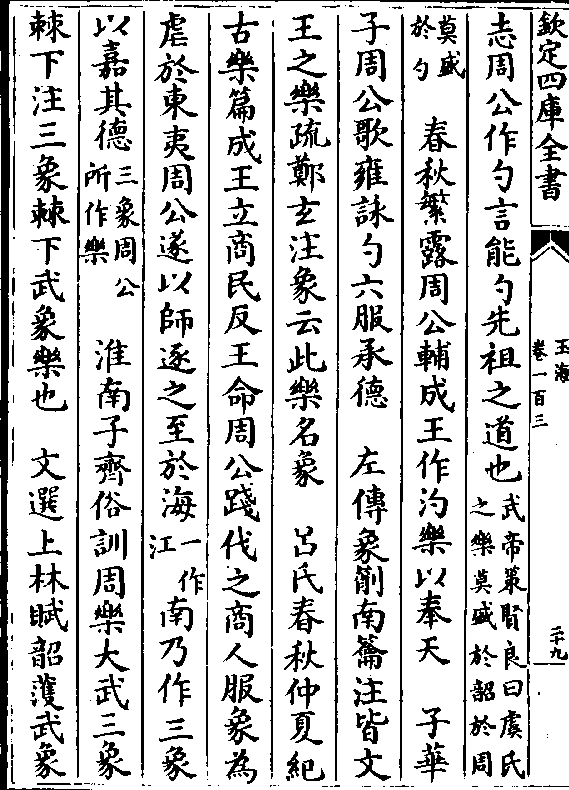 欽定四庫全書
玉海
卷一百三
二十九
志周公作勺言能勺先祖之道也武帝策賢良曰虞氏之樂莫盛於韶於周
莫盛於勺 春秋繁露周公輔成王作汋樂以奉天 子華
子周公歌雍詠勺六服承德 左傳象箾南籥注皆文
王之樂疏鄭玄注象云此樂名象 呂氏春秋仲夏紀
古樂篇成王立商民反王命周公踐伐之商人服象為
虐於東夷周公遂以師逐之至於海一作江南乃作三象
以嘉其德三象周公所作樂 淮南子齊俗訓周樂大武三象
棘下注三象棘下武象樂也 文選上林賦韶濩武象